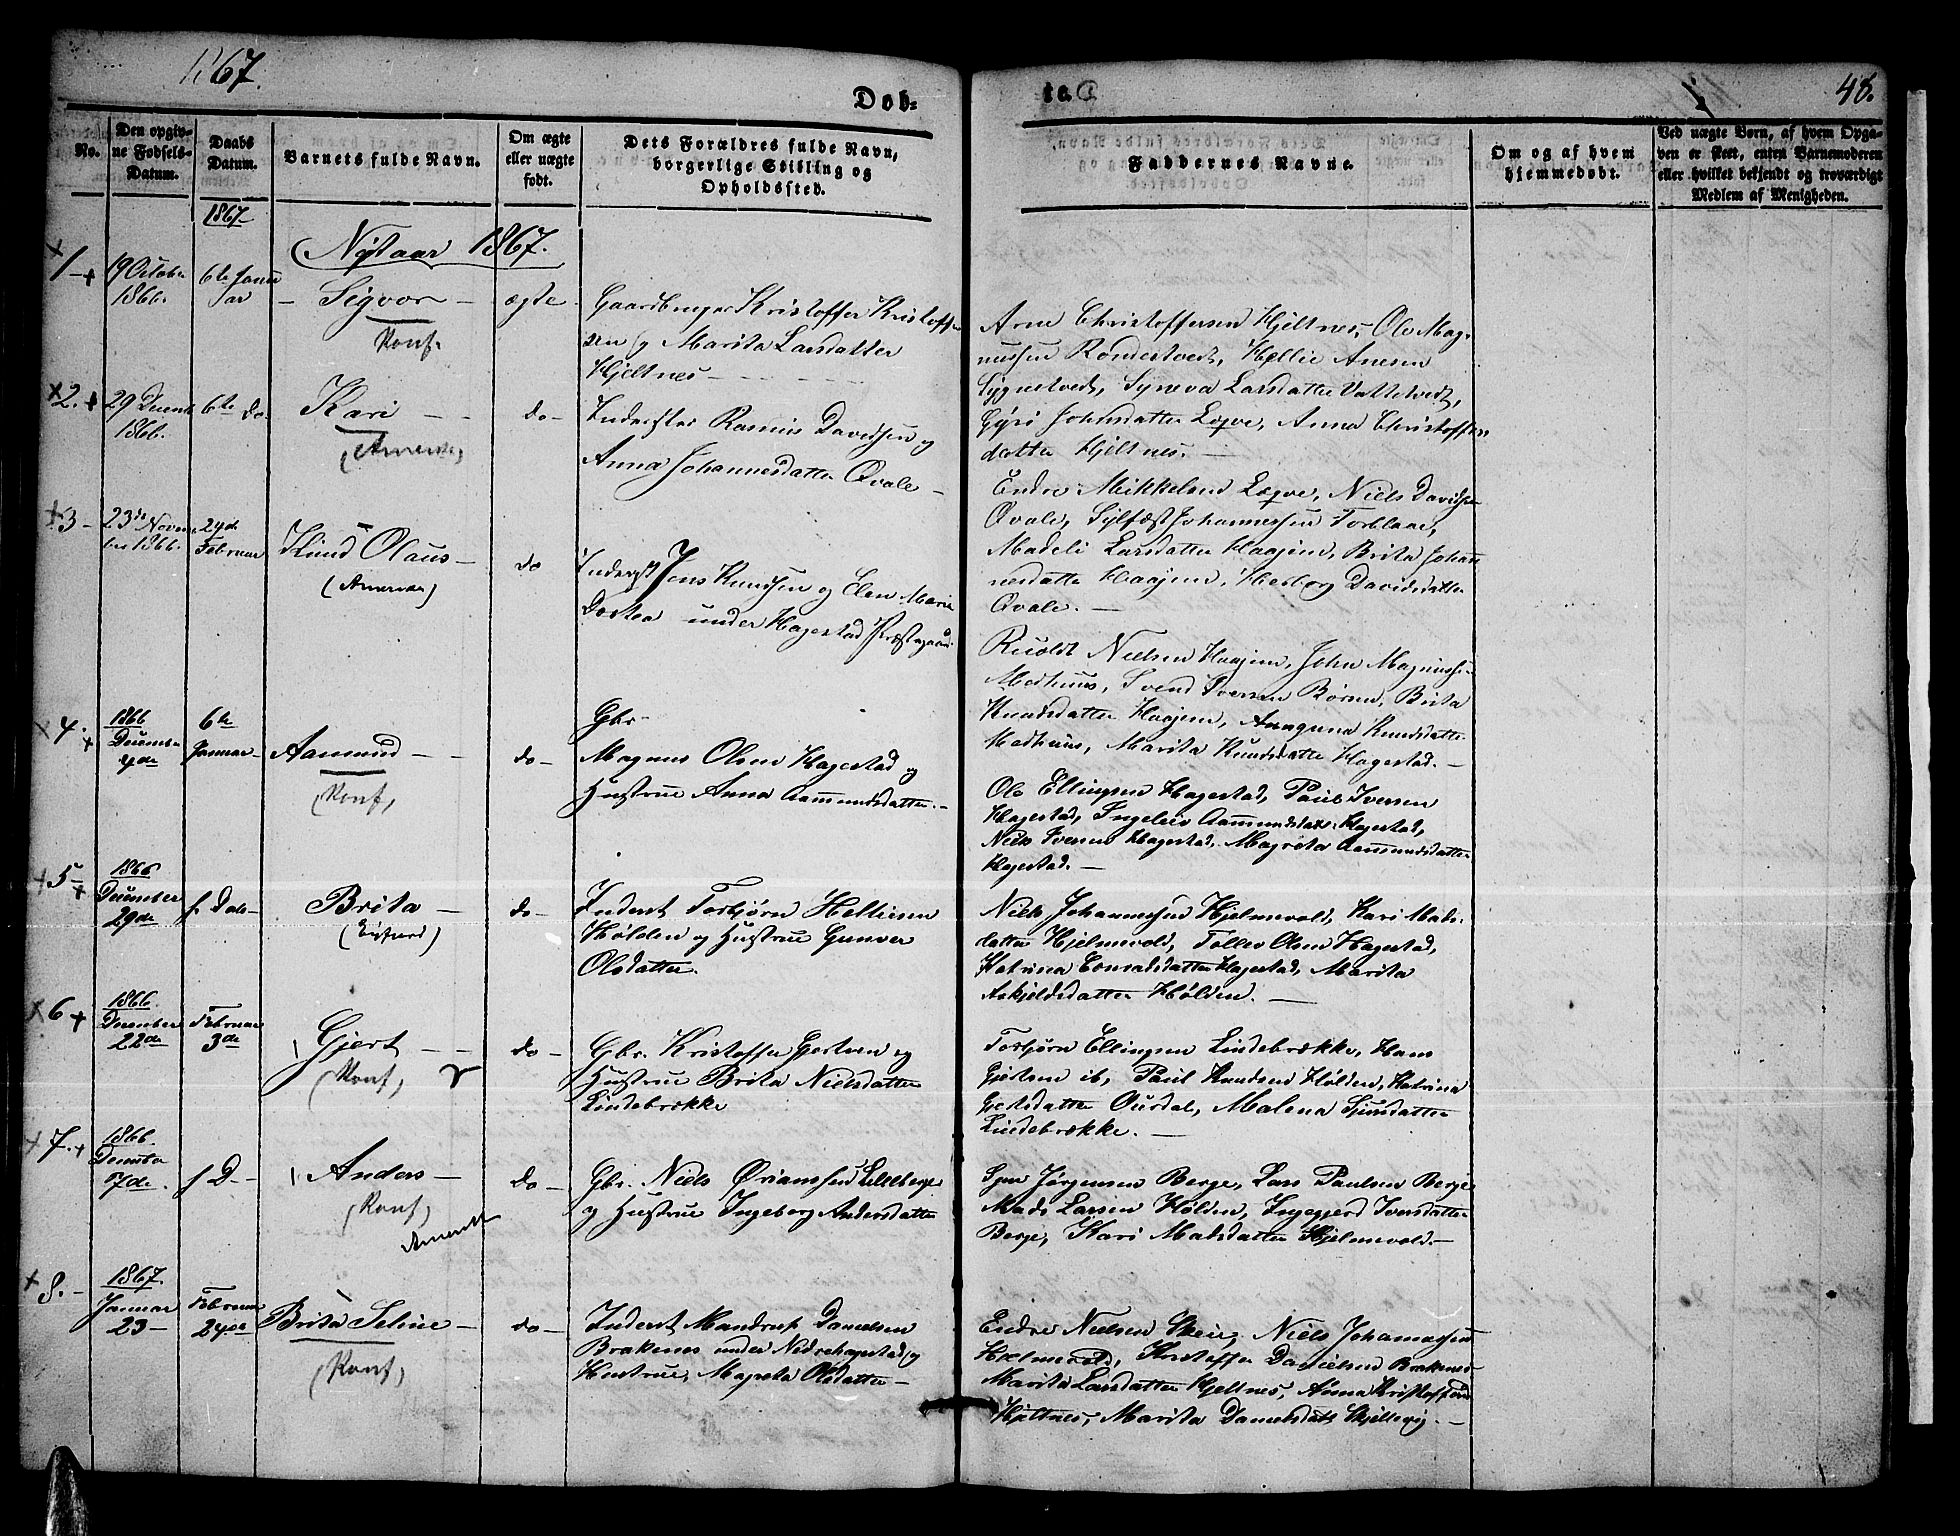 1867.
Døb=
te.
48.
No.
Den opgiv-
ne Fødsels-
Datum.
Daabs
Datum.
Barnets fulde Navn.
Om ægte
eller uægte
født.
Dets Forældres fulde Navn,
borgerlige Stilling og
Opholdssted.
Faddernes Navne.
Om og af hvem
hjemmedøbt.
Ved uægte Børn, af hvem Opga-
ven er skeet, enten Barnemoderen
eller hvilket bekjendt og troværdigt
Medlem af Menigheden.
1867
Nytaar 1867.
1
19 Octobr
1866.
6te Janu
ar
Sigvor
Konf.
ægte
Gaardbruger Kristoffer Kristoffer
sen og Marita Larsdatter
Hjeltnes
Arne Christoffersen Hjeltnes, Ole Mag-
nussen Rondestvedt, Hellie Anesen
Sygnestvedt, Syneva Larsdatter Vattetvedt,
Gyri Johnsdatter Legve, Anna Christoffers
datter Hjeltnes.
2.
29 Decemb
1866.
6te do
Kari
(Amerika)
do
Inderster Rasmus Davidsen og
Anna Johannesdatter Qvale
Endre Mikkelsen Legve, Niels Davidsen
Qvale, Sylfæst Johannessen Torblaae,
Madeli Larsdatter Haajem, Brita Johan
nesdatter Haajem, Herborg Davidsdatter
Qvale.
3
23de Novem
ber 1866.
24de
Februar
Knud Olaus
(Amerika)
do
Inderst Jens Knudsen og Elen Marie
Dortea under Hagestad Præstegaard
Ruoldt Nielsen Haajem, John Magnussen
Medhuus, Svend Iversen Børsem, Brita
Knudsdatter Haajem, Anaguna Knudsdatter
Medhuus, Marita Knudsdatter Hagestad.
4.
1866
Decembr
4de
6te
Januar
Aamund
(Konf)
do
Gbr.
Magnus Olsen Hagestad og
Hustrue Anna Aamundsdatter.
Ole Ellingsen Hagestad, Paul Iversen
Hagestad, Ingeleiv Aamundsdatr Hagestad,
Niels Iversen Hagestad, Magreta Aamundsdatter
Hagestad.
5
1866
December
29de
f. Do
Brita
(Eifjord)
do
Inderst Torbjørn Helliesen
Hølden og Hustrue Gunver
Olsdatter.
Niels Johannessen Hjelmevold, Kari Mads-
datter Hjelmevold, Tollev Olsen Hagestad,
Katrina Conradsdatter Hagestad, Marita
Askjeldsdatter Hølden.
6
1866
December
22de
Februar
3de
Gjert
(Konf)
do
Gbr. Kristoffer Gjertsen og
Hustrue Brita Nielsdatter
Lindebrække
Torbjørn Ellingsen Lindebrække, Hans
Gjertsen ib, Paul Knudsen Hølden, Katrina
Gjertsdatter Ousdal, Malena Sjursdatter
Lindebrække.
7.
1866.
December
7de
f D
Anders
(Konf)
Amerika
do
Gbr. Niels Ørjanssen Lilleberge
og Hustrue Ingeborg Andersdatter
Sjur Jørgensen Berge, Lars Paulsen Berge
Mads Larsen Hølden, Ingegjerd Iversdatter
Berge, Kari Madsdatter Hjelmevold.
8.
1867.
Januar
23
Februar
24de
Brita Seline
(Konf)
do
Inderst Mandrup Danielsen
Brakenes under Nedrehagestad og
Hustrue, Magreta Olsdatter
Endre Nielsen Skeie, Niels Johannessen
Hielmevold, Kristoffer Danielsen Brakenes
Marita Larsdatter Hjeltnes, Anna Kristoffersd
Hjeltnes, Marita Danielsdatr Skjellevig.